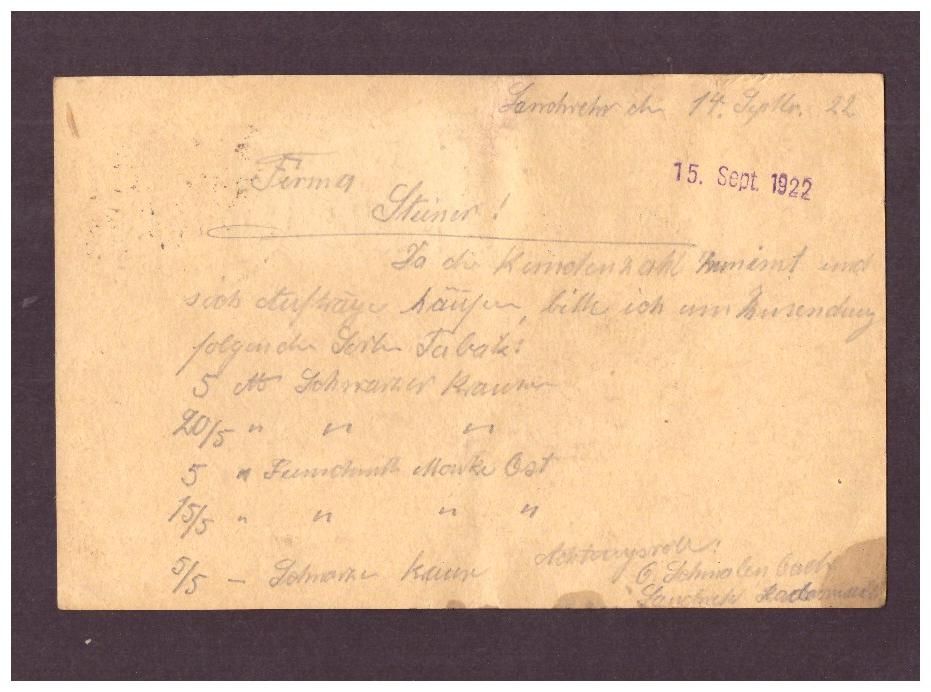 Landwehr den 14. Septbr. 22
15. Sept. 1922
Firma
Steiner!
Da die Kundenzahl zunimmt und
sich Aufträge häufen, bitte ich um Zusendung
folgender Sorten Tabak:
5 Schwarzer Krauser
20/5 " " "
5 " Feinschnitt Marke Ost
15/5 " " " "
5/5 — Schwarzer Krauser
Achtungsvoll!
Schmalenbach
Landwehr